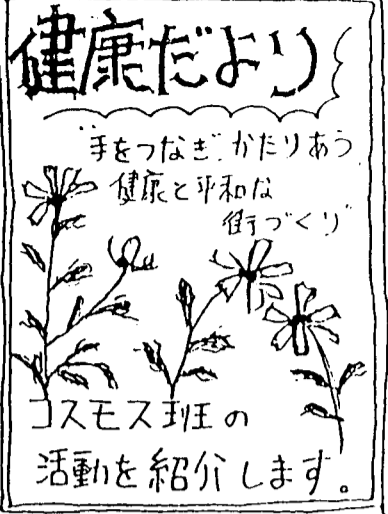 健康だより
"手をつなぎ、かたりあう
健康と平和な
街づくり"
コスモス班の
活動を紹介します。